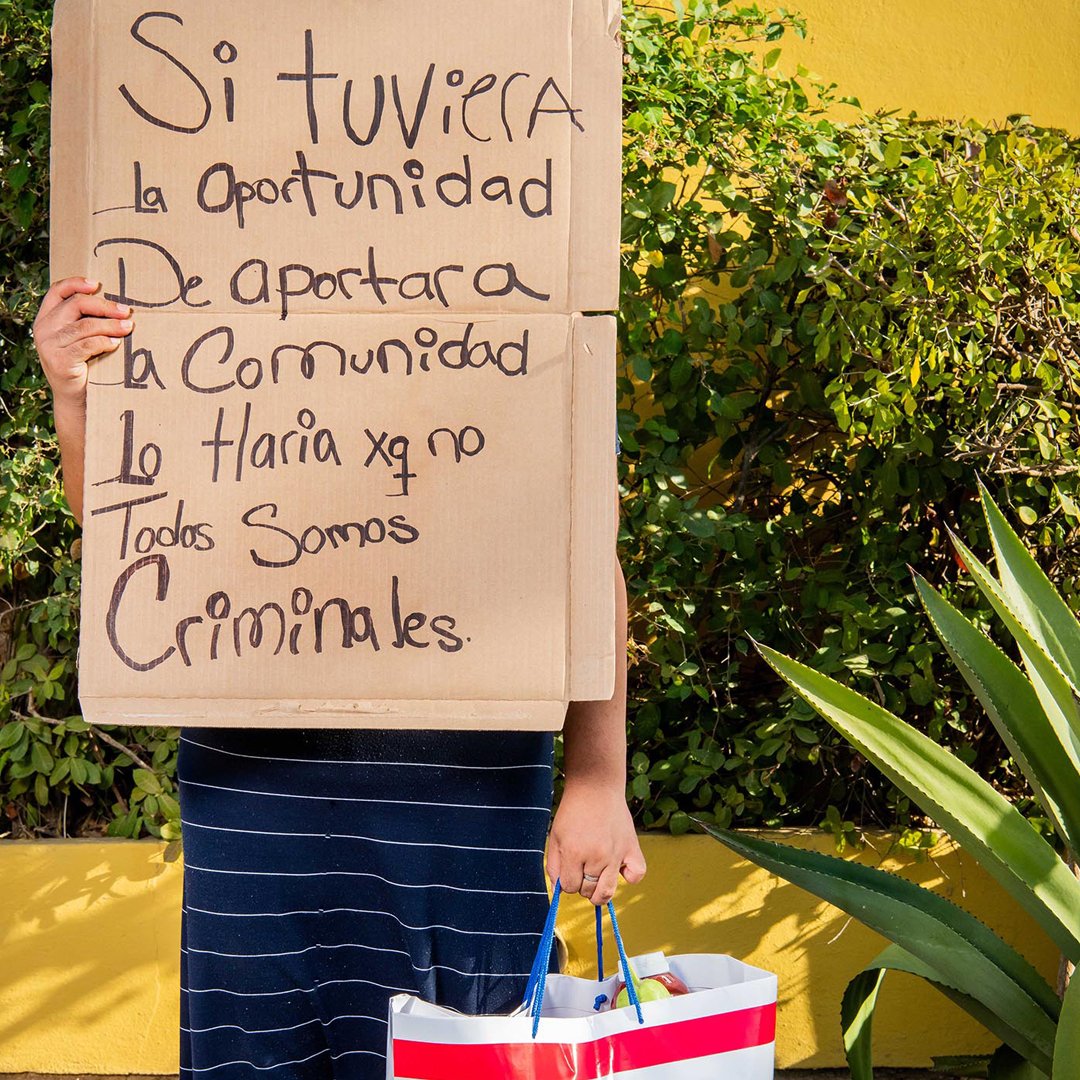 Si tuvierA
La Oportunidad
De aportar a
La Comunidad
Lo Haria xq no
Todos Somos
Criminales.